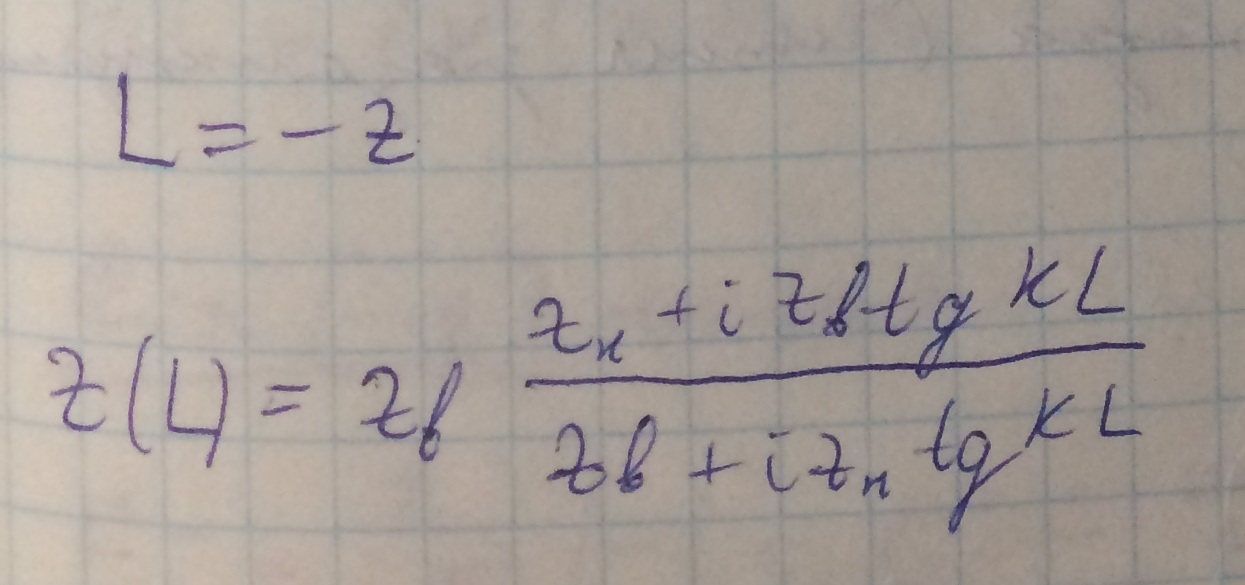 L = - z
z(L) = z_в \frac{z_н + i z_в tg kL}{z_в + i z_н tg kL}